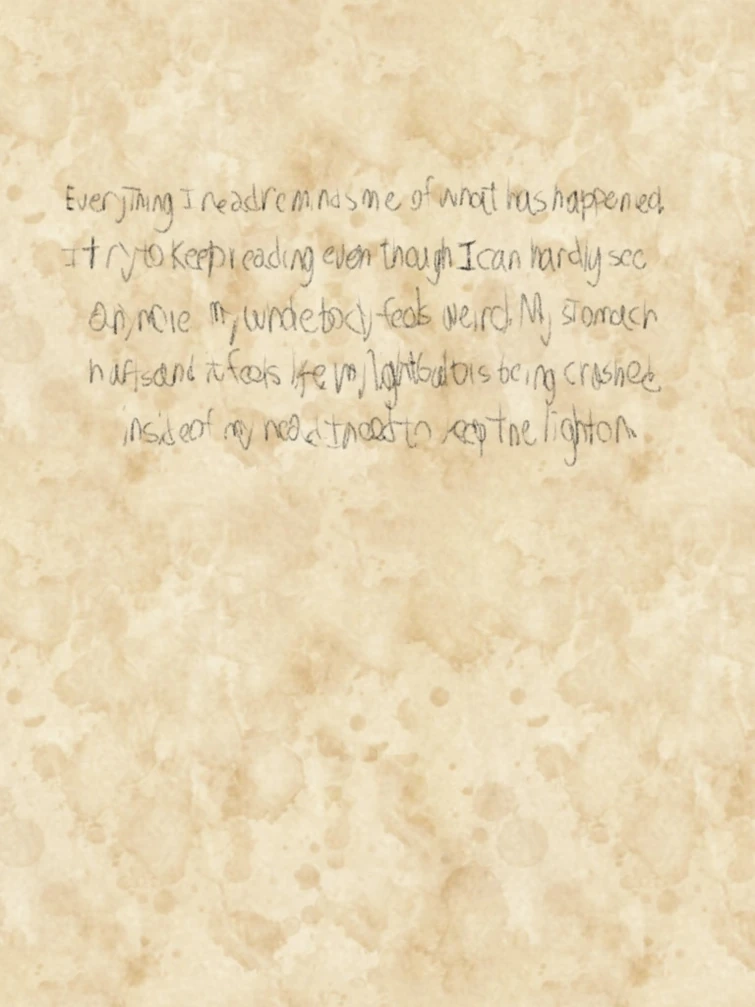 Everything I read reminds me of what has happened.
I try to keep reading even though I can hardly see
anymore my whole body feels weird. My stomach
hurts and it feels like my lightbulb is being crushed
inside of my head I need to keep the light on.